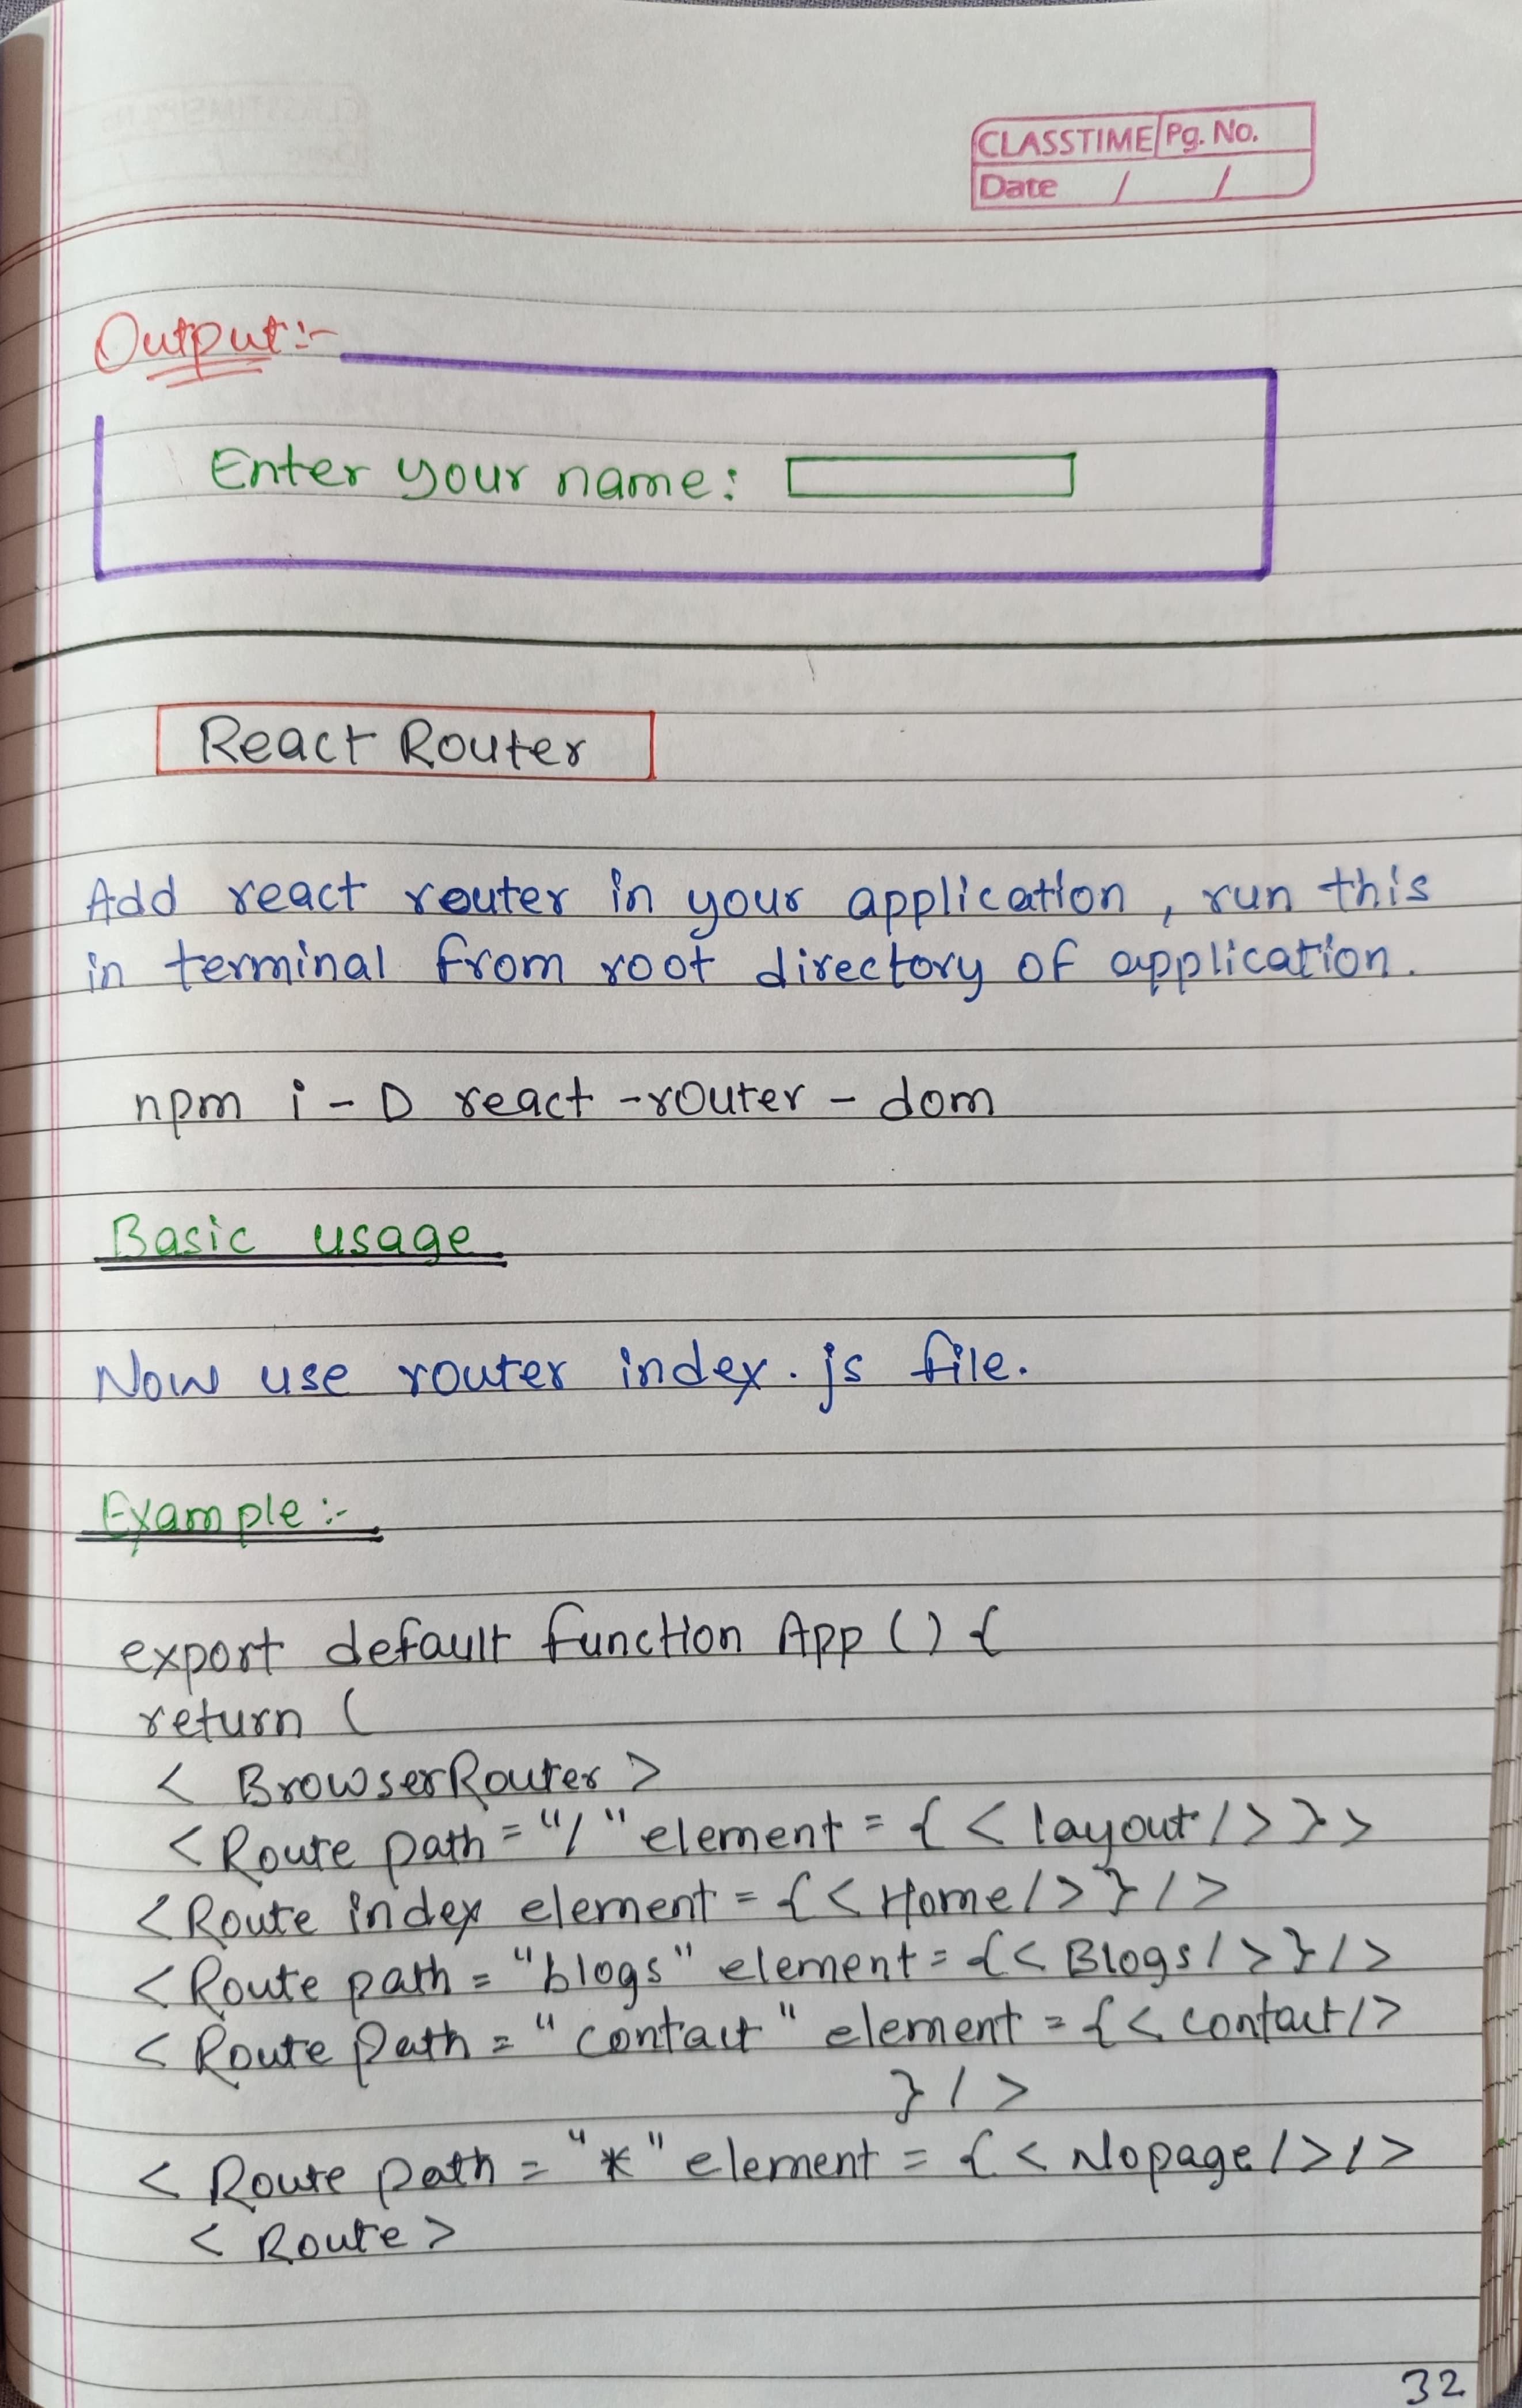 CLASSTIME Pg. No.
Date / /
Output:-
Enter your name:
React Router
Add react router in your application, run this
in terminal from root directory of application.
npm i - D react -router - dom
Basic usage
Now use router index.js file.
Example:-
export default function App () {
return (
< BrowserRouter >
<Route path = "/" element = { < layout /> }>
<Route index element = {< Home/>} />
<Route path = "blogs" element = {< Blogs/>}/>
< Route Path = "contact" element = {< contact/>
} / >
< Route path = "*" element = {< Nopage />/>
< Route >
32